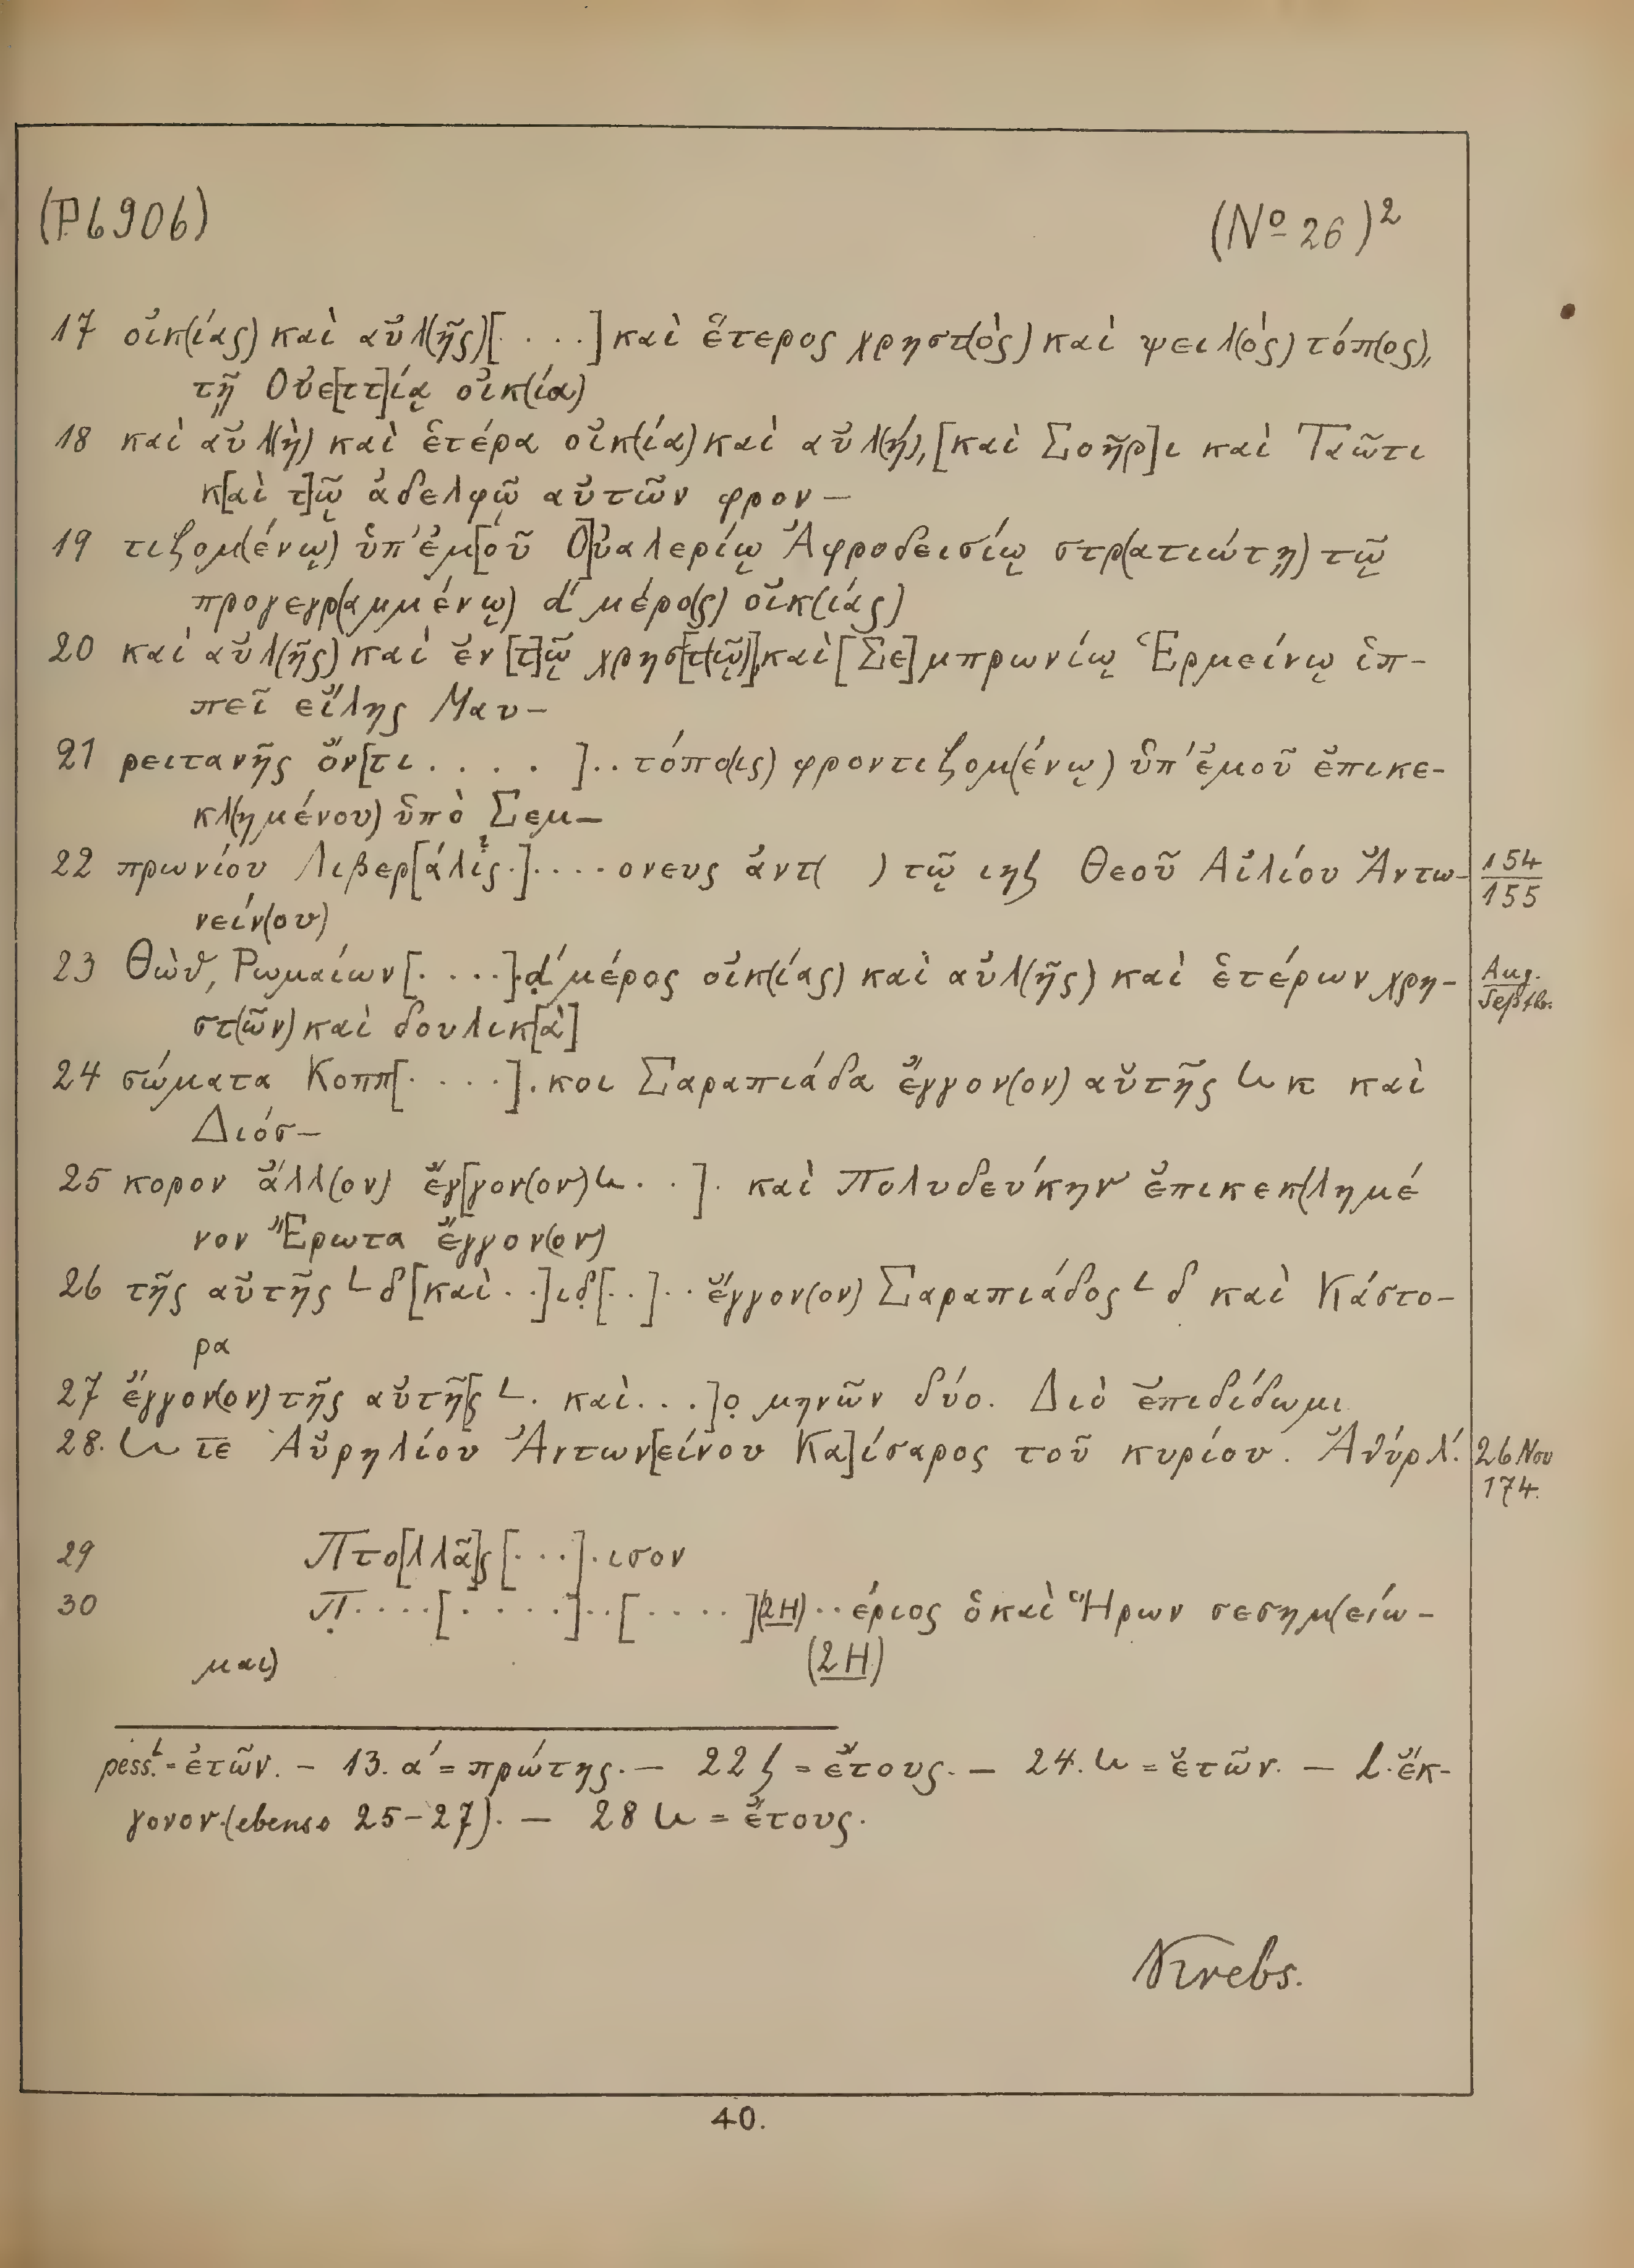 (P6906) (№ 26)²
17 οἰκ(ίας) καὶ αὐλ(ῆς)[. . . .] καὶ ἕτερος χρηστ(ὸς) καὶ ψειλ(ὸς) τόπ(ος),
τῇ Οὐε[ττ]ίᾳ οἰκ(ία)
18 καὶ αὐλ(ὴ) καὶ ἑτέρα οἰκ(ία) καὶ αὐλ(ή), [καὶ Σοῆρ]ι καὶ Ταῶτι
κ[αὶ τ]ῷ ἀδελφῷ αὐτῶν φρον-
19 τιζομ(ένῳ) ὑπ' ἐμ[οῦ Ο]ὐαλερίῳ Ἀφροδεισίῳ στρ(ατιώτῃ) τῷ
προγεγρ(αμμένῳ) δ´ μέρο(ς) οἰκ(ίας)
20 καὶ αὐλ(ῆς) καὶ ἐν [τ]ῷ χρησ[τ(ῷ)], καὶ [Σε]μπρωνίῳ Ἑρμείνῳ ἱπ-
πεῖ εἴλης Μαυ-
21 ρειτανῆς ὄν[τι . . . . ] . . τόπο(ις) φροντιζομ(ένῳ) ὑπ' ἐμοῦ ἐπικε-
κλ(ημένου) ὑπὸ Σεμ-
22 πρωνίου Λιβερ[άλις?.]. . . . ονευς ἀντ( ) τῷ ιηζ Θεοῦ Αἰλίου Ἀντω- 154
νείν(ου) 155
23 Θὼθ, Ρωμαίων [. . . .].δ´ μέρος οἰκ(ίας) καὶ αὐλ(ῆς) καὶ ἑτέρων χρη- Aug.
στ(ῶν) καὶ δουλικ[ὰ] Septbr.
24 σώματα Κοππ[. . . .].κοι Σαραπιάδα ἔγγον(ον) αὐτῆς 𐅹 κ καὶ
Διόσ-
25 κορον ἄλλ(ον) ἔγ[γον(ον) 𐅹 . .]. καὶ Πολυδεύκην ἐπικεκ(λημέ
νον Ἔρωτα ἔγγον(ον)
26 τῆς αὐτῆς L δ [καὶ . .]ιδ̣[. .]. . ἔγγον(ον) Σαραπιάδος L δ καὶ Κάστο-
ρα
27 ἔγγον(ον) τῆς αὐτῆ[ς L . καὶ . . .]ο̣ μηνῶν δύο. Διὸ ἐπιδίδωμι
28. 𐅹 ιε Αὐρηλίου Ἀντων[είνου Κα]ίσαρος τοῦ κυρίου. Ἀθύρ λ´. 26 Nov
174.
29 Πτο[λλᾶ]ς [. . .].ισον
30 Π̣. . . .[. . . .]. .[. . . .](2H) . . έριος ὁ καὶ Ἥρων σεσημ(είω-
μαι) (2H)
pess. L = ἐτῶν. – 13. α´ = πρώτης. – 22 ζ = ἔτους. – 24. 𐅹 = ἐτῶν. – l. ἔκ-
γονον (ebenso 25–27). – 28 𐅹 = ἔτους.
Krebs.
40.